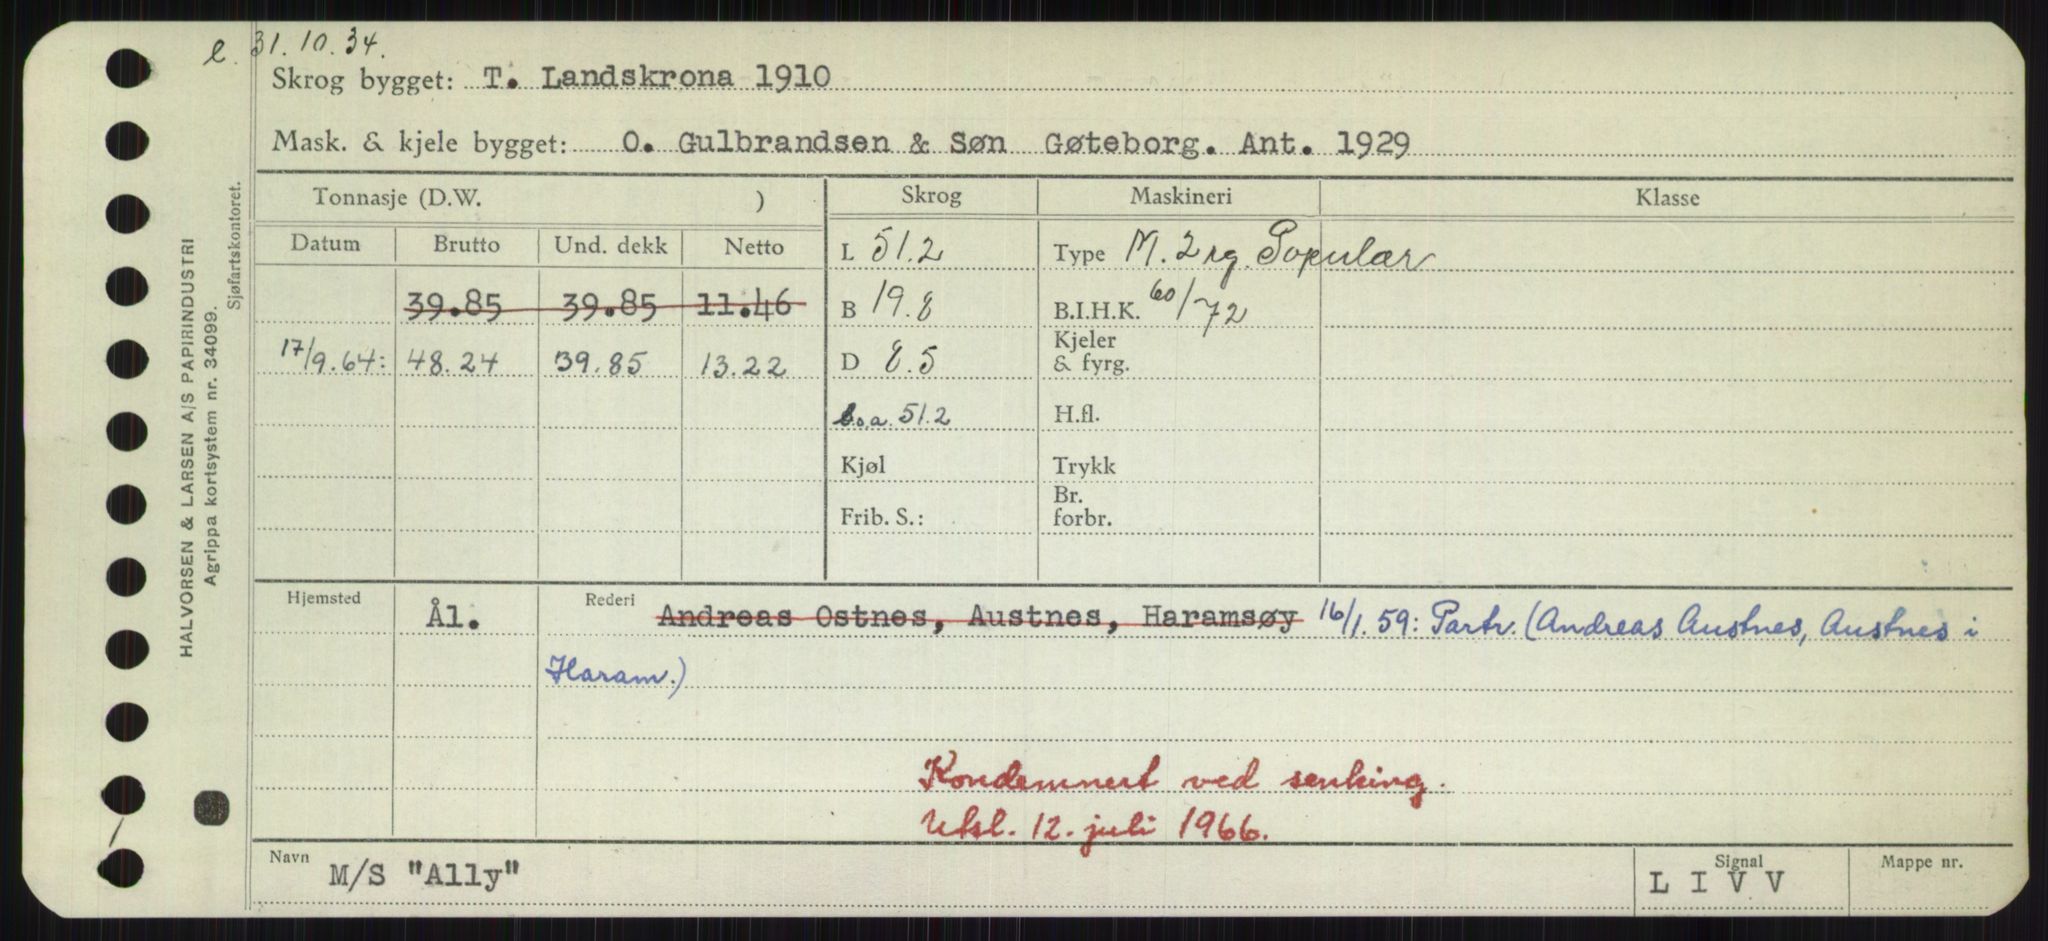 e. 31.10.34.
Skrog bygget: T. Landskrona 1910
Mask. & kjele bygget: O. Gulbrandsen & Søn Gøteborg. Ant. 1929
Tonnasje (D.W. ) Skrog Maskineri Klasse
Datum Brutto Und. dekk Netto L 51.2 Type M. 2 sg. Populær
39.85 39.85 11.46 B 19.8 B.I.H.K. 60/72
17/9.64: 48.24 39.85 13.22 D 8.5 Kjeler & fyrg.
L.o.a. 51.2 H.fl.
Kjøl Trykk
Frib. S.: Br. forbr.
Hjemsted Ål. Rederi Andreas Ostnes, Austnes, Haramsøy 16/1.59: Partr. (Andreas Austnes, Austnes i
Haram.)
Kondemnert ved senking.
Uksl. 12. juli 1966.
Navn M/S "Ally" Signal L I V V Mappe nr.
HALVORSEN & LARSEN A/S PAPIRINDUSTRI
Agrippa kortsystem nr. 34099.
Sjøfartskontoret.